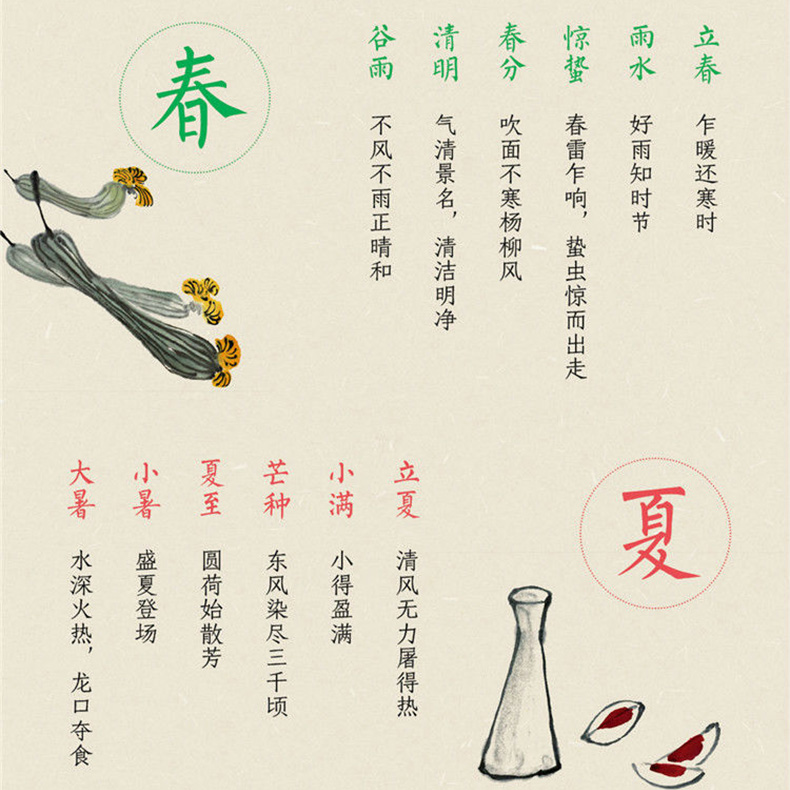 春
立春
乍暖还寒时
雨水
好雨知时节
惊蛰
春雷乍响，蛰虫惊而出走
春分
吹面不寒杨柳风
清明
气清景名，清洁明净
谷雨
不风不雨正晴和
夏
立夏
清风无力屠得热
小满
小得盈满
芒种
东风染尽三千顷
夏至
圆荷始散芳
小暑
盛夏登场
大暑
水深火热，龙口夺食